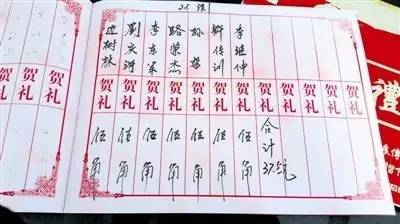 贺礼
贺礼
贺礼
树林 贺礼 伍角
刘庆 贺礼 伍角
李东军 贺礼 伍角
路荣杰 贺礼 伍角
孙 贺礼 伍角
传训 贺礼 伍角
李继伸 贺礼 伍角
贺礼 合计37.5元
贺礼
贺礼
贺礼
贺礼
禮